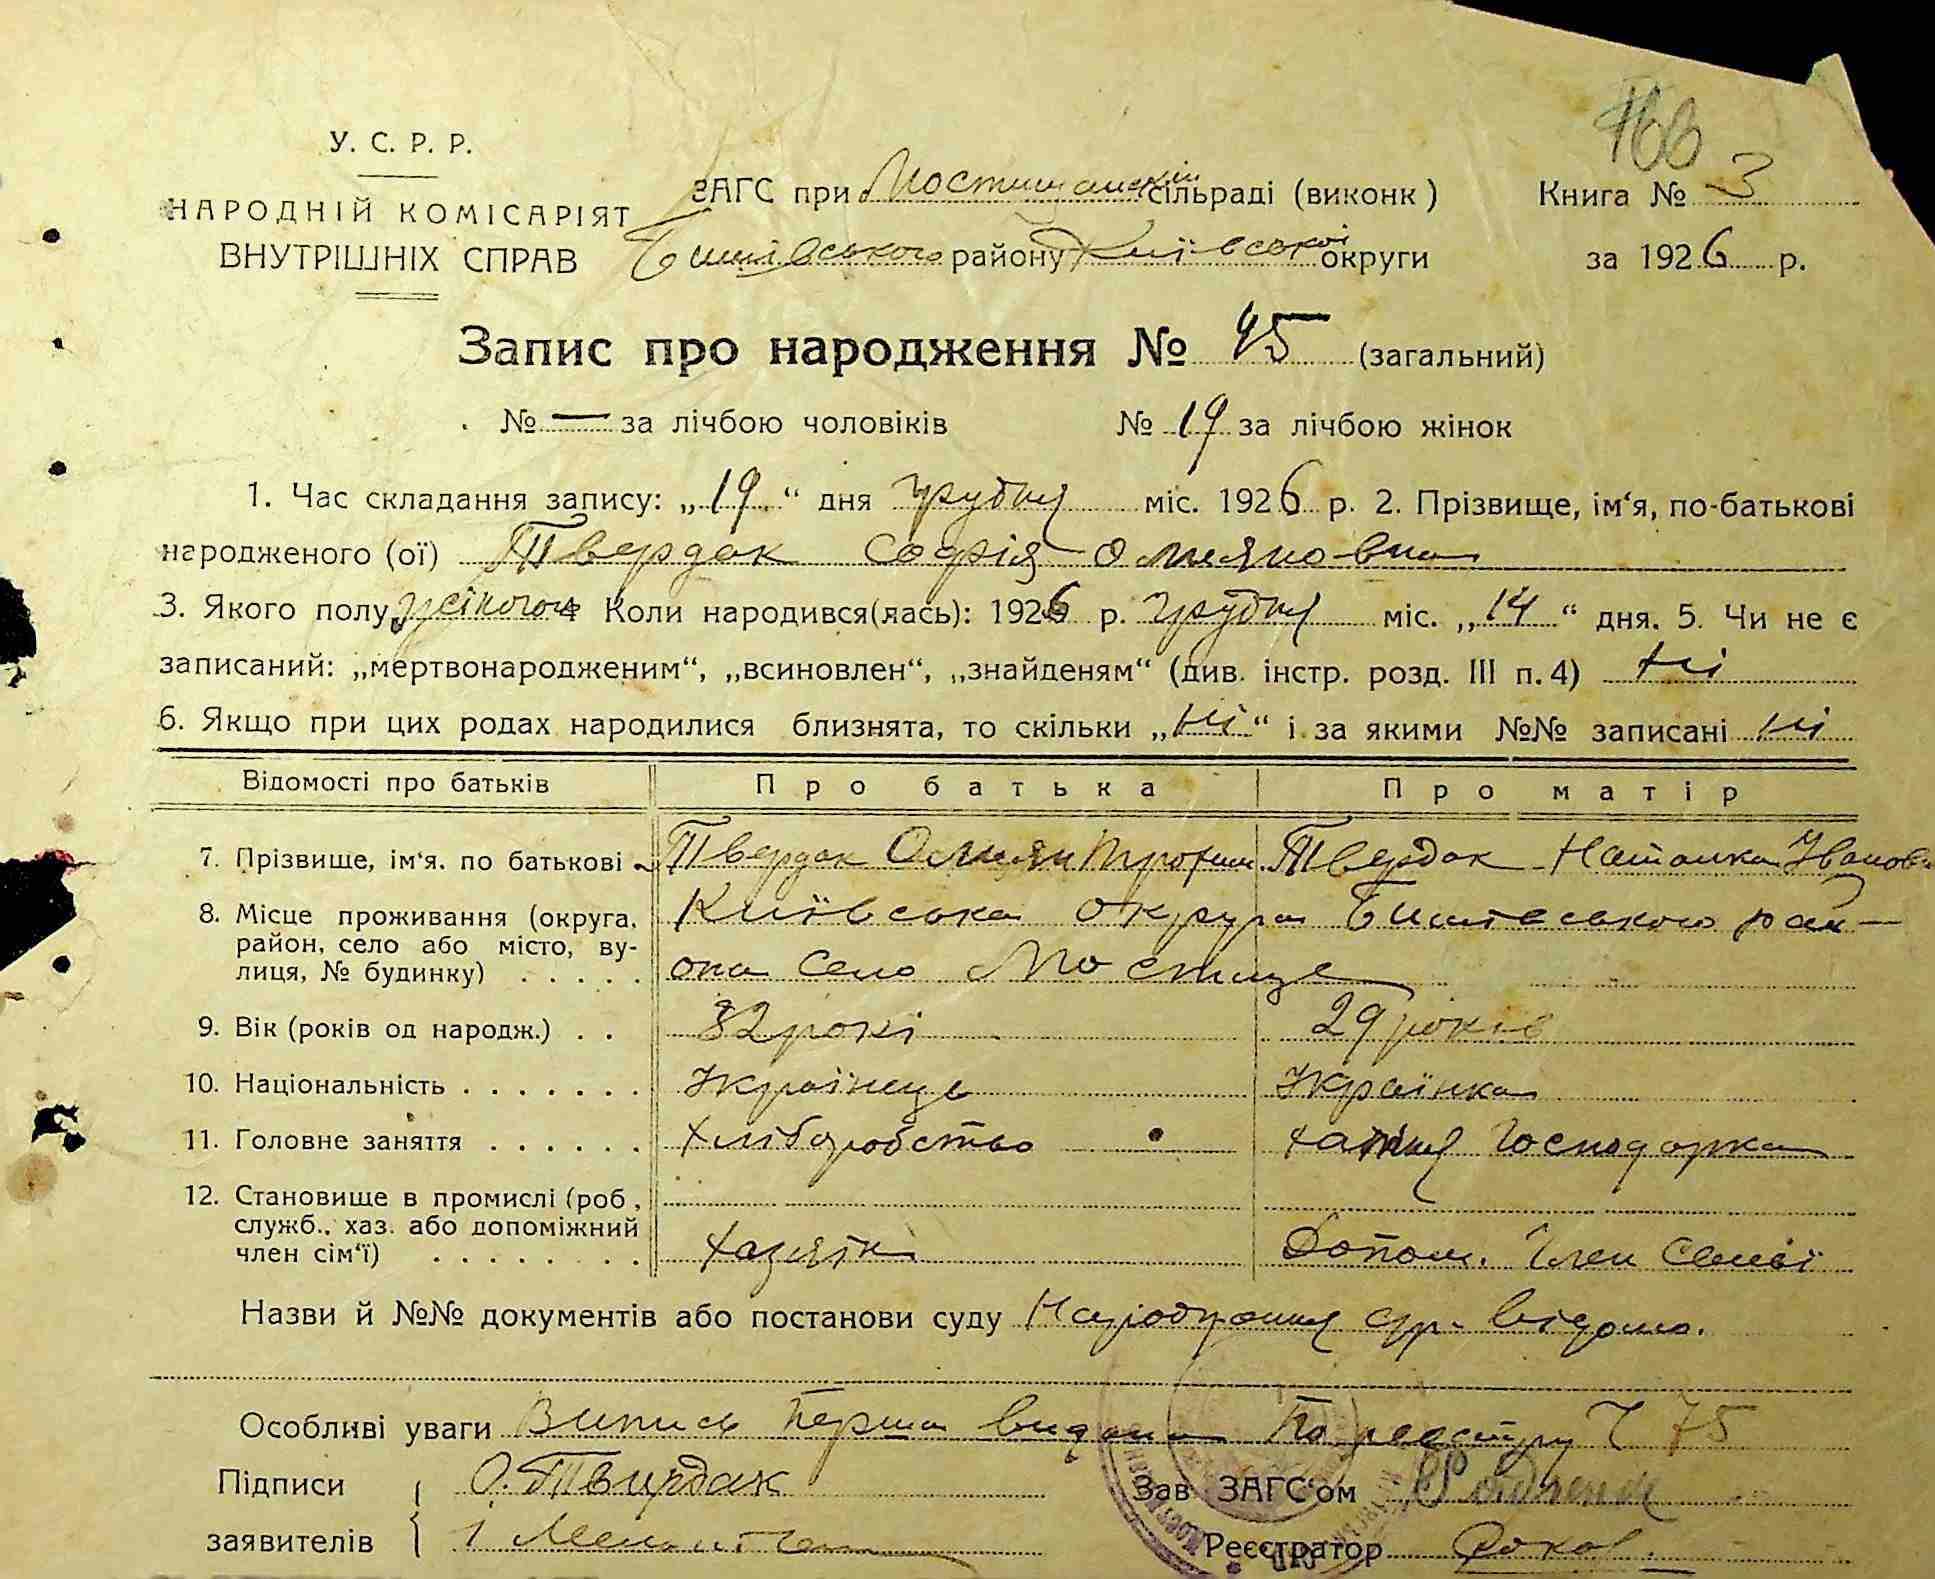 У. С. Р. Р.
НАРОДНІЙ КОМІСАРІЯТ
ВНУТРІШНІХ СПРАВ
ЗАГС при Мостищанській сільраді (виконк )
Бишівського району Київської округи
Книга № 3
за 1926 р.
Запис про народження № 45 (загальний)
№ — за лічбою чоловіків № 19 за лічбою жінок
1. Час складання запису: „19“ дня грудня міс. 1926 р. 2. Прізвище, ім‘я, по-батькові
народженого (ої) Твердак Софія Омеляновна
3. Якого полу жіночого 4 Коли народився(лась): 1926 р. грудня міс. „14“ дня. 5. Чи не є
записаний: „мертвонародженим“, „всиновлен“, „знайденям“ (див. інстр. розд. III п. 4) ні
6. Якщо при цих родах народилися близнята, то скільки „ні“ і за якими №№ записані ні
Відомості про батьків Про батька Про матір
7. Прізвище, ім‘я. по батькові Твердак Омелян Трохим. Твердак Наталка Іванов
8. Місце проживання (округа, Київська округа Бишівського рай-
район, село або місто, ву-
лиця, № будинку) . . . . . она село Мостище
9. Вік (років од народж.) . . 32 рокі 29 років
10. Національність . . . . . . . Українець Українка
11. Головне заняття . . . . . . Хліборобство хатня господарка
12. Становище в промислі (роб ,
служб., хаз. або допоміжний
член сім‘ї) . . . . . . . . хазяїн Допом. член семьї
Назви й №№ документів або постанови суду
Особливі уваги Випись перша видана По реєстру Ч 75
Підписи О. Твирдак Зав ЗАГС‘ом
заявителів Реєстратор